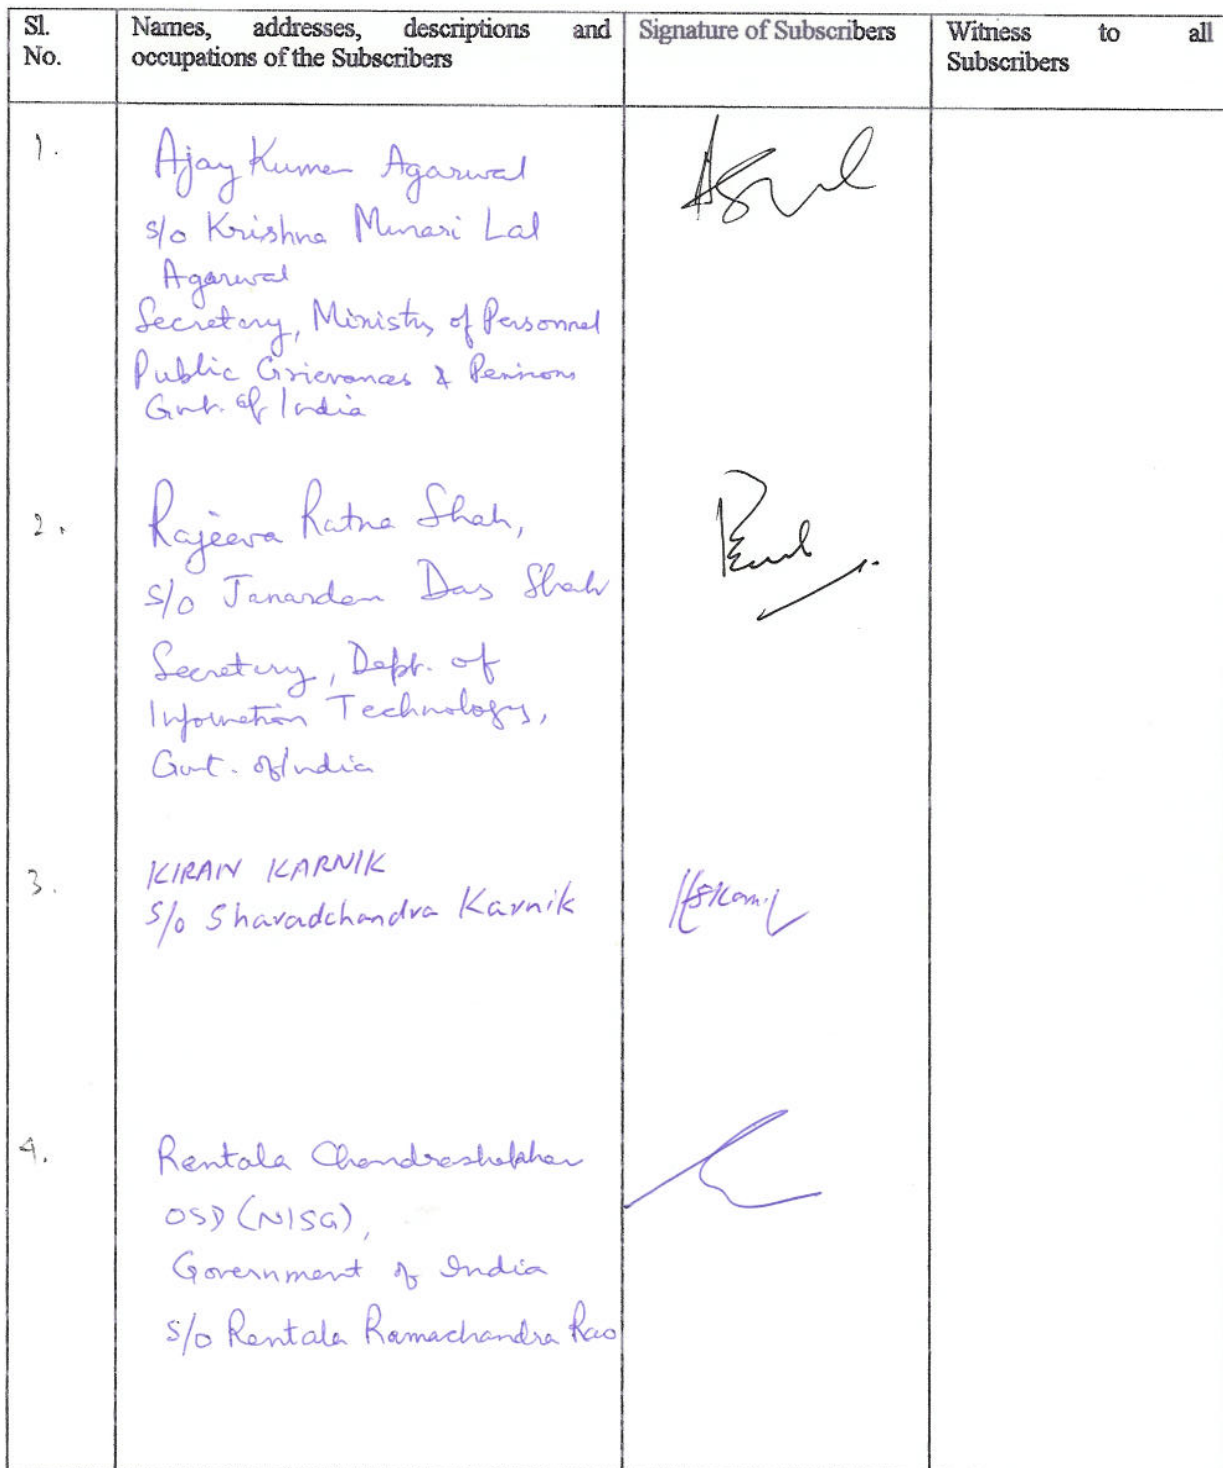 Sl. No.
Names, addresses, descriptions and occupations of the Subscribers
Signature of Subscribers
Witness to all Subscribers
1.
Ajay Kumar Agarwal
s/o Krishna Murari Lal
Agarwal
Secretary, Ministry of Personnel
Public Grievances & Pensions
Govt. of India
2.
Rajeeva Ratna Shah,
s/o Janardan Das Shah
Secretary, Dept. of
Information Technology,
Govt. of India
3.
KIRAN KARNIK
S/o Sharadchandra Karnik
4.
Rentala Chandrashekhar
OSD (NISG),
Government of India
s/o Rentala Ramachandra Rao